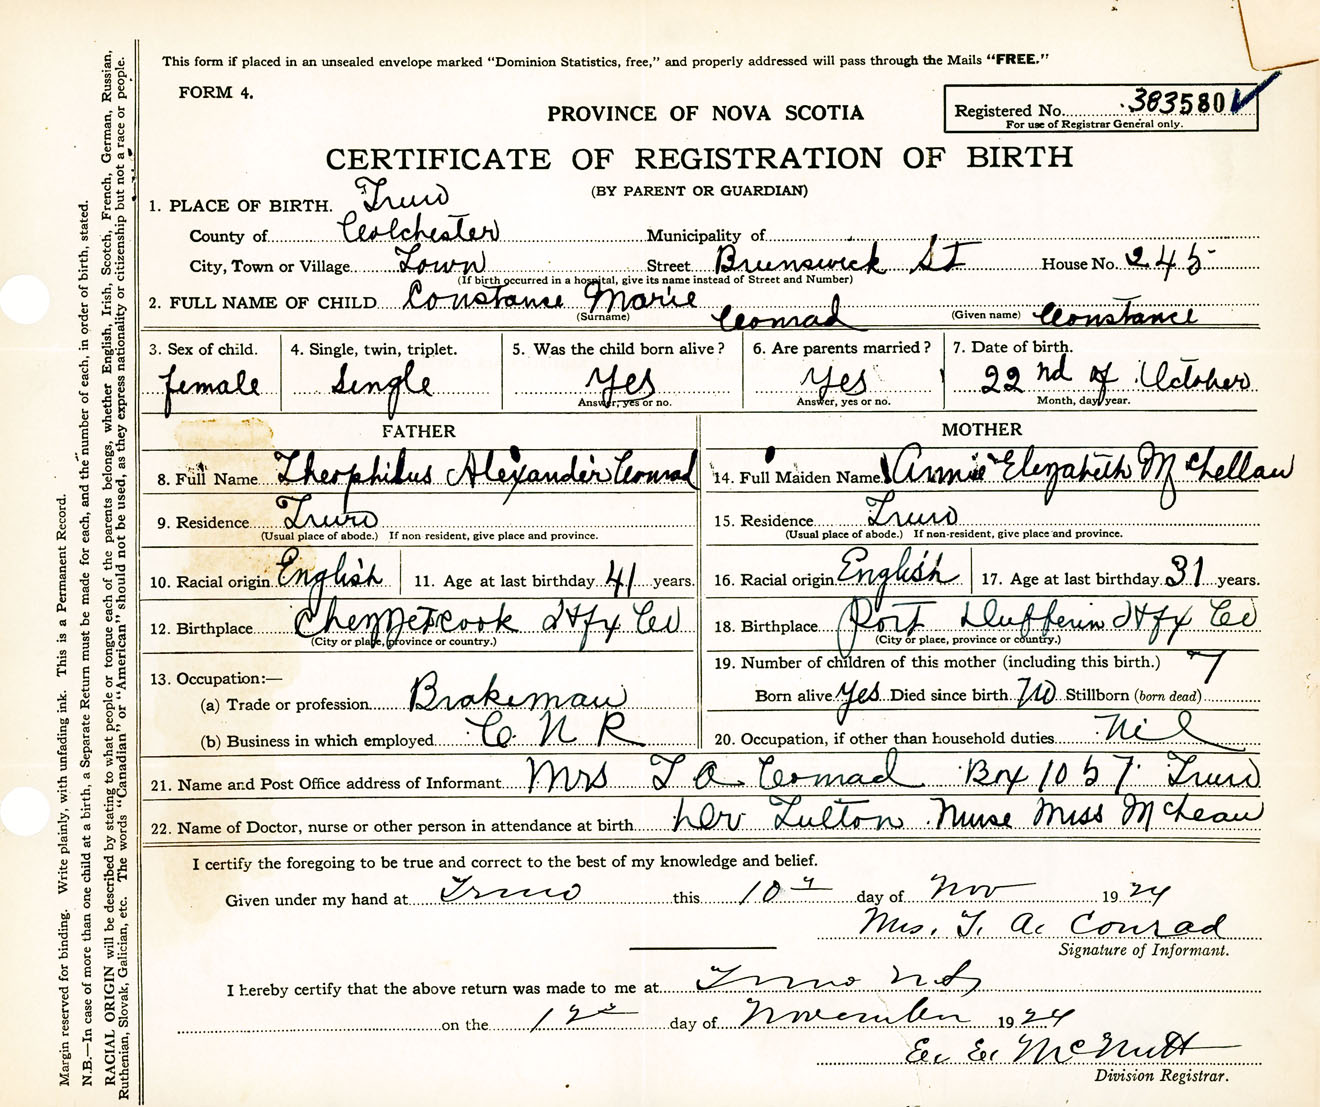 This form if placed in an unsealed envelope marked "Dominion Statistics, free," and properly addressed will pass through the Mails "FREE."
FORM 4.
Registered No. 383580
For use of Registrar General only.
PROVINCE OF NOVA SCOTIA
CERTIFICATE OF REGISTRATION OF BIRTH
(BY PARENT OR GUARDIAN)
1. PLACE OF BIRTH. Truro
County of Colchester Municipality of
City, Town or Village Town Street Brunswick St House No. 245
(If birth occurred in a hospital, give its name instead of Street and Number)
2. FULL NAME OF CHILD Constance Marie Conrad Constance
(Surname) (Given name)
3. Sex of child. 4. Single, twin, triplet. 5. Was the child born alive? 6. Are parents married? 7. Date of birth.
female Single Yes Yes 22nd of October
Answer, yes or no. Answer, yes or no. Month, day, year.
FATHER MOTHER
8. Full Name Theophilus Alexander Conrad 14. Full Maiden Name Annie Elizabeth McLellan
9. Residence Truro 15. Residence Truro
(Usual place of abode.) If non resident, give place and province. (Usual place of abode.) If non-resident, give place and province.
10. Racial origin English 11. Age at last birthday 41 years. 16. Racial origin English 17. Age at last birthday 31 years.
12. Birthplace Chezzetcook Hfx Co 18. Birthplace Port Dufferin Hfx Co
(City or place, province or country.) (City or place, province or country.)
13. Occupation:— 19. Number of children of this mother (including this birth.) 7
(a) Trade or profession Brakeman Born alive Yes Died since birth no Stillborn (born dead)
(b) Business in which employed C. N R 20. Occupation, if other than household duties Nil
21. Name and Post Office address of Informant Mrs T A Conrad Box 1057 Truro
22. Name of Doctor, nurse or other person in attendance at birth Nurse Miss McLean
I certify the foregoing to be true and correct to the best of my knowledge and belief.
Given under my hand at Truro this 10th day of Nov 1924
Mrs. T. A. Conrad
Signature of Informant.
I hereby certify that the above return was made to me at Truro N S
on the 12th day of November 1924
E. E. McNutt
Division Registrar.
Margin reserved for binding. Write plainly, with unfading ink. This is a Permanent Record.
N.B.—In case of more than one child at a birth, a Separate Return must be made for each, and the number of each, in order of birth, stated.
RACIAL ORIGIN will be described by stating to what people or tongue each of the parents belongs, whether English, Irish, Scotch, French, German, Russian,
Ruthenian, Slovak, Galician, etc. The words "Canadian" or "American" should not be used, as they express nationality or citizenship but not a race or people.